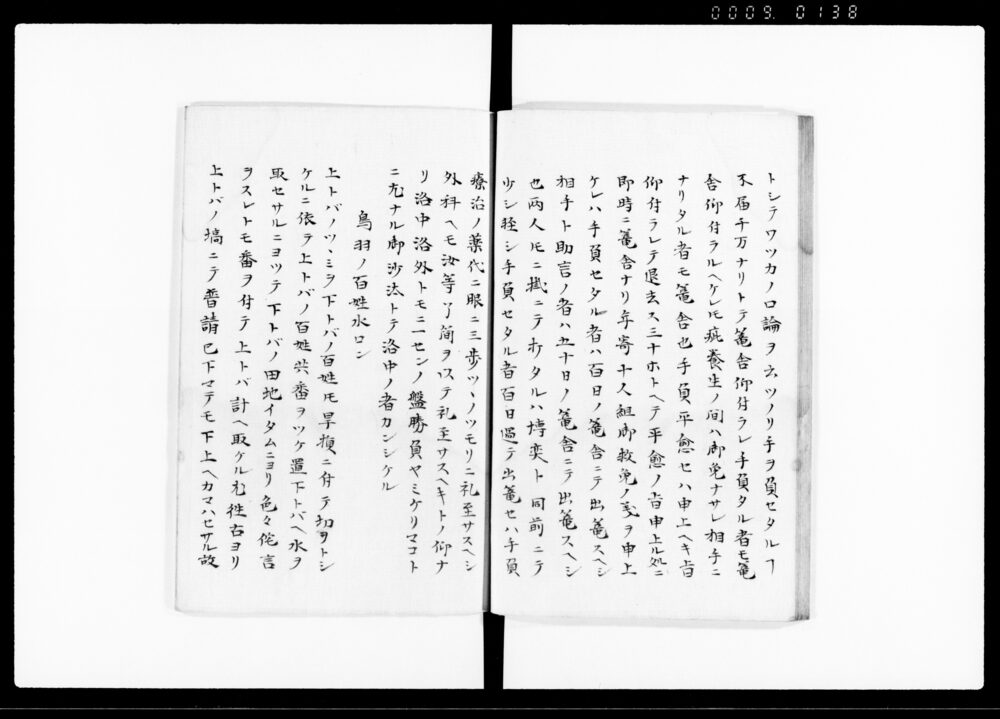 0009. 0138
トシテワツカノ口論ヲ云ツノリ手ヲ負セタルヿ
不届千万ナリトテ篭舎仰付ラレ手負タル者モ篭
舎仰付ラルヘケレ𪜈疵養生ノ間ハ御免ナサレ相手ニ
ナリタル者モ篭舎也手負平愈セハ申上ヘキ旨
仰付ラレテ退去ス三十ホトヘテ平愈ノ旨申上ル処ニ
即時ニ篭舎ナリ年寄十人組御救免ノ義ヲ申上
ケレハ手負セタル者ハ百日ノ篭舎ニテ出篭スヘシ
相手ト助言ノ者ハ五十日ノ篭舎ニテ出篭スヘシ
也両人𪜈ニ擬ニテ打タルハ博奕ト同前ニテ
少シ軽シ手負セタル者百日過テ出篭セハ手負
療治ノ薬代ニ眼ニ三歩ツヽノツモリニ礼至サスヘシ
外科ヘモ汝等了簡ヲ以テ礼至サスヘキトノ仰ナ
リ洛中洛外トモニ一センノ盤勝負ヤミケリマコト
ニ尤ナル御沙汰トテ洛中ノ者カンシケル
鳥羽ノ百姓水ロン
上トバノツヽミヲ下トバノ百姓𪜈旱損ニ付テ切ヲトシ
ケルニ依テ上トバノ百姓共番ヲツケ置下トバヘ水ヲ
取セサルニヨツテ下トバノ田地イタムニヨリ色々侘言
ヲスレトモ番ヲ付テ上トバ計ヘ取ケル尤往古ヨリ
上トバノ塙ニテ普請已下マテモ下上ヘカマハセサル故